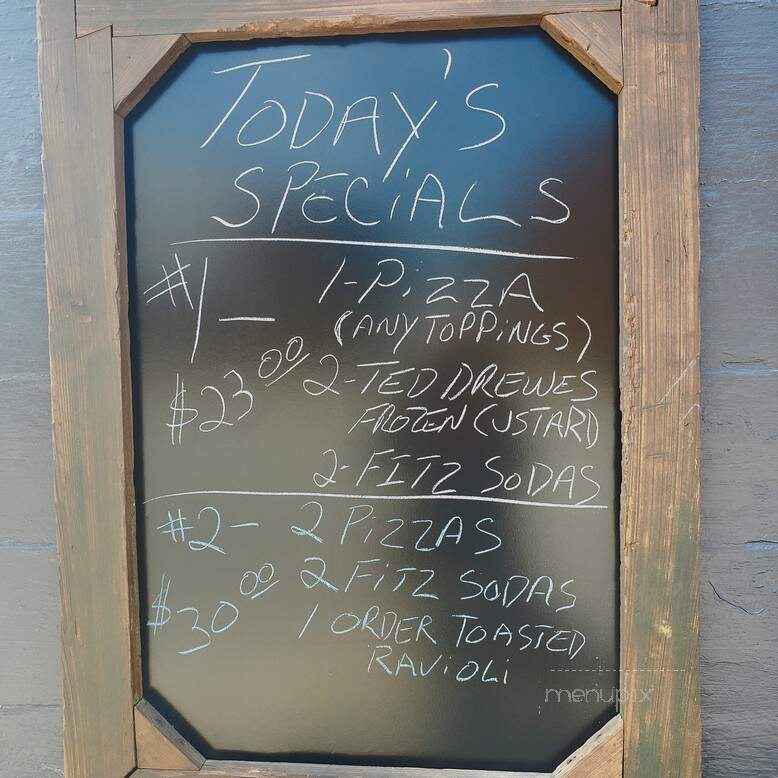 TODAY'S
SPECIALS
#1 — 1-PIZZA
(ANY TOPPINGS)
$23.00 2-TED DREWES
FROZEN CUSTARD
2-FITZ SODAS
#2 — 2 PIZZAS
$30.00 2 FITZ SODAS
1 ORDER TOASTED
RAVIOLI
menupix